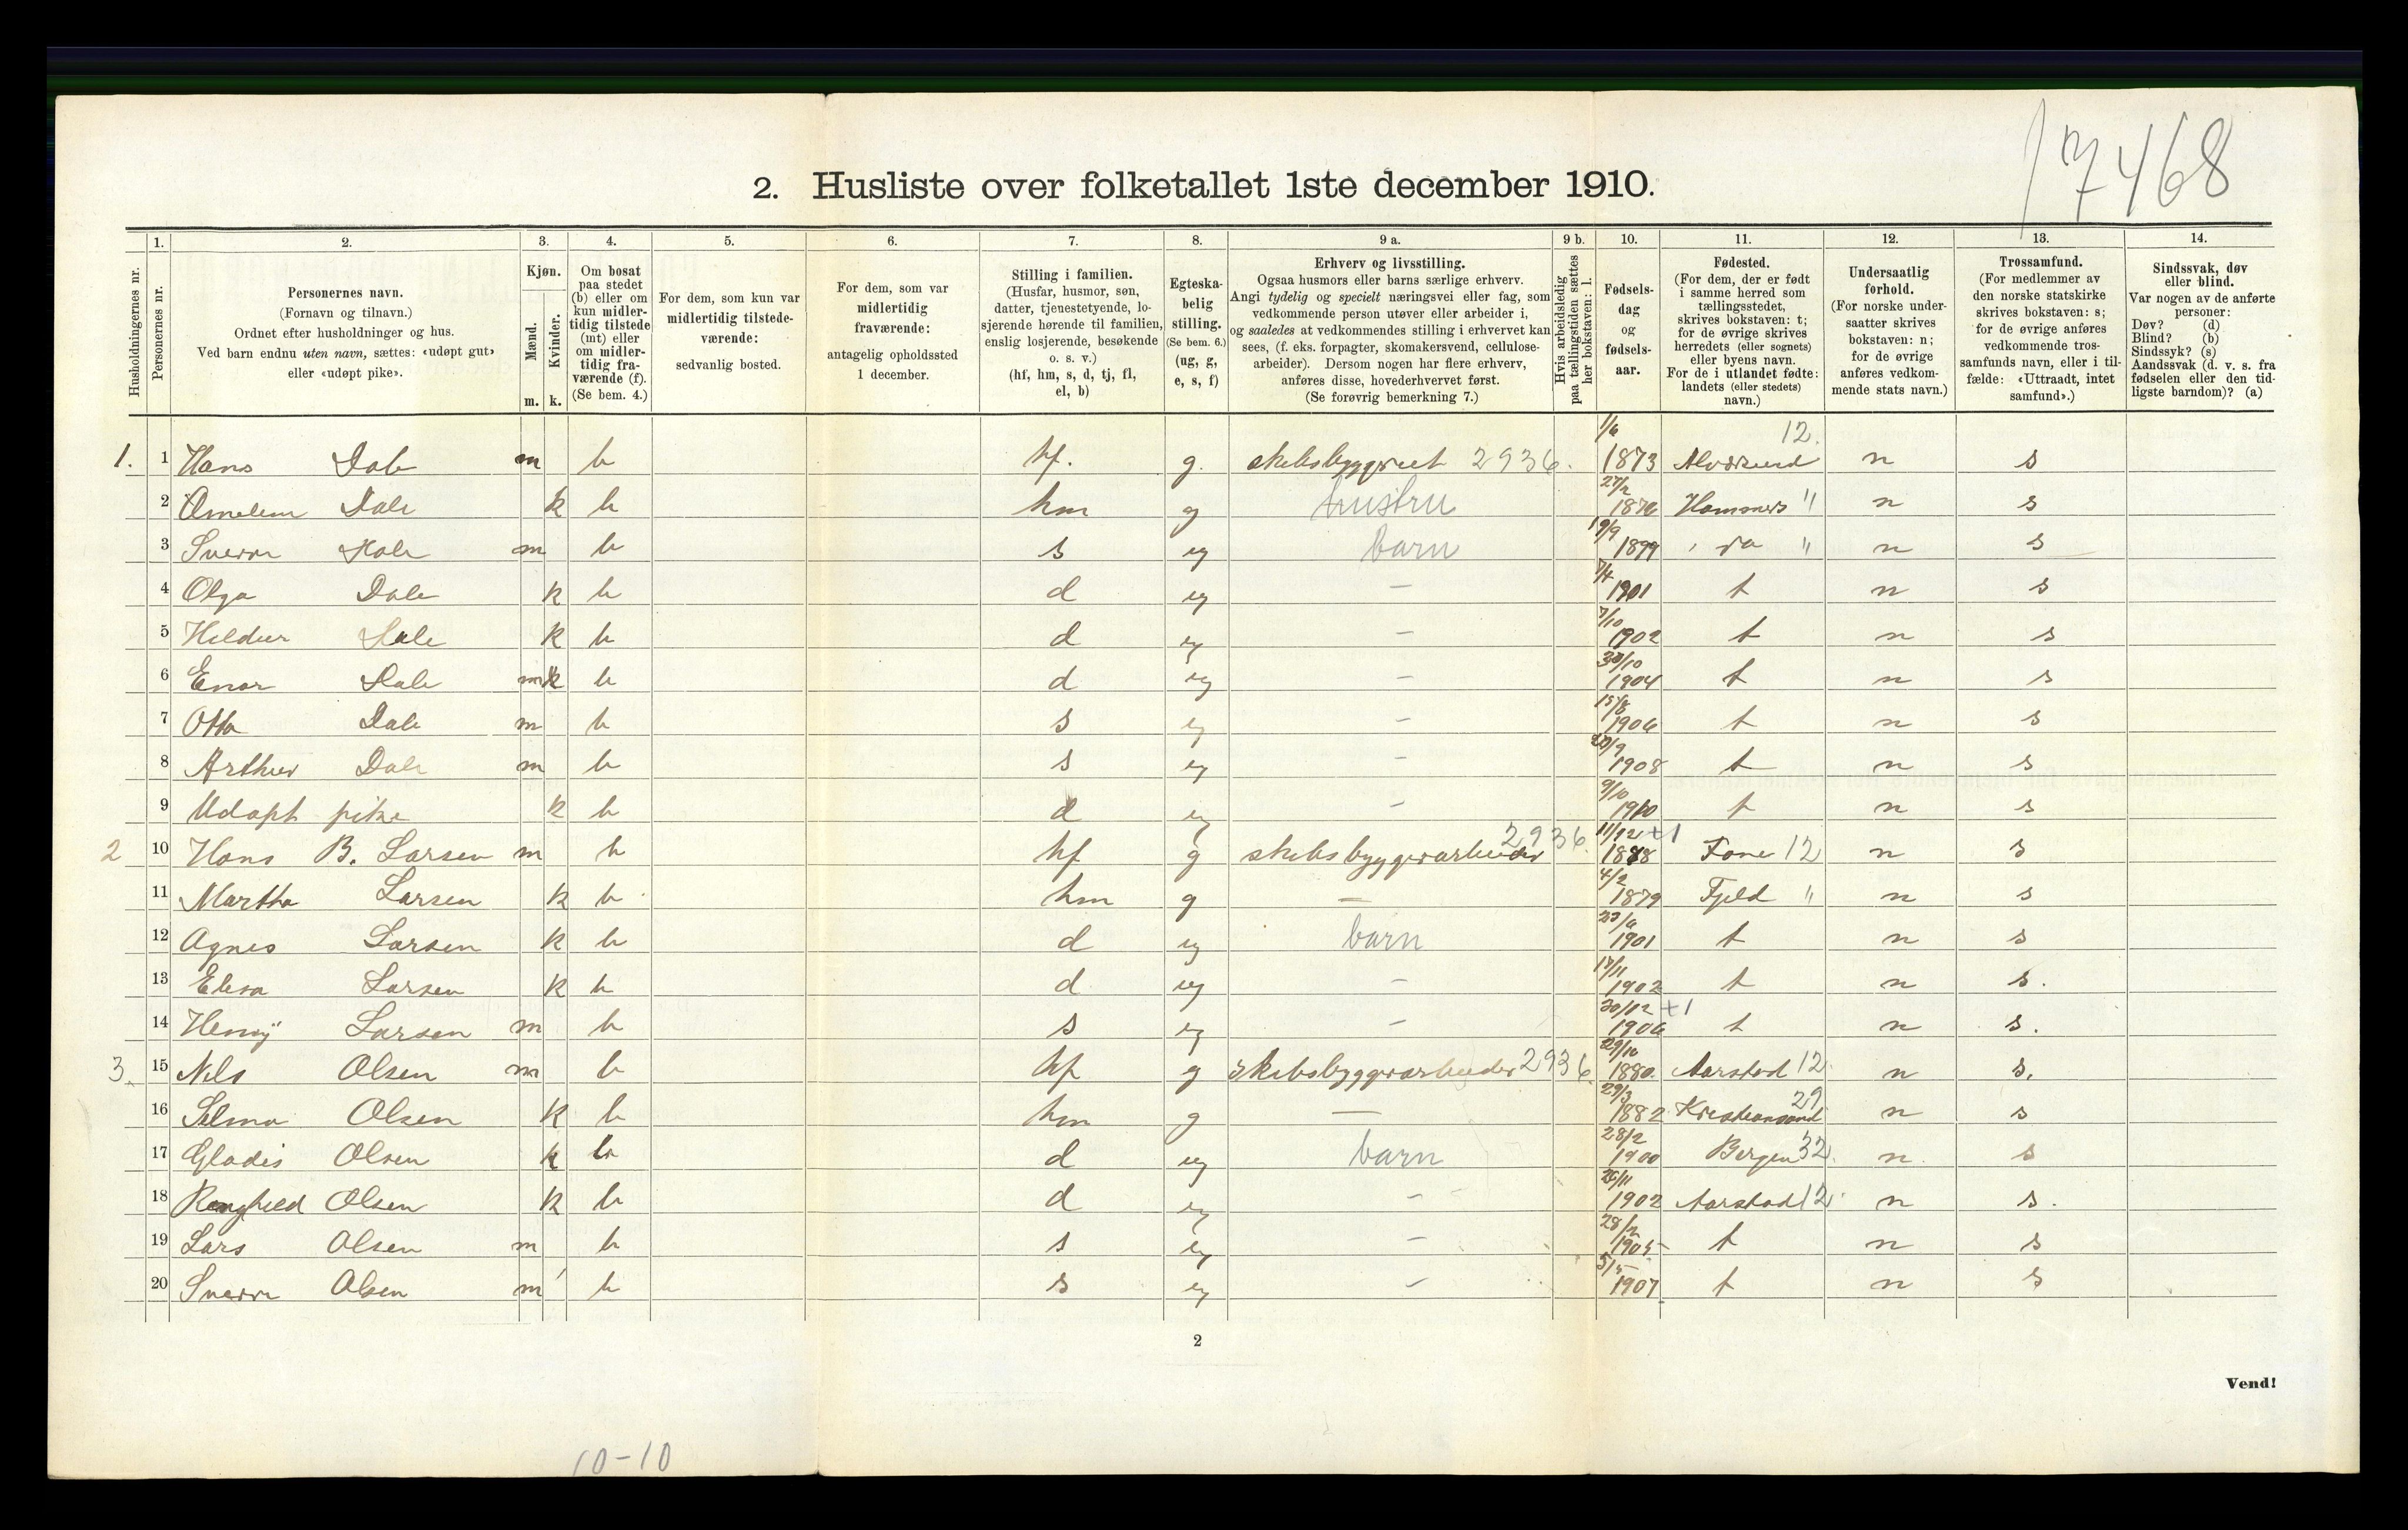 17468
2. Husliste over folketallet 1ste december 1910.
Husholdningernes nr.
1. Personernes nr.
2. Personernes navn. (Fornavn og tilnavn.) Ordnet efter husholdninger og hus. Ved barn endnu uten navn, sættes: «udøpt gut» eller «udøpt pike».
3. Kjøn. Mænd. m. Kvinder. k.
4. Om bosat paa stedet (b) eller om kun midlertidig tilstede (mt) eller om midlertidig fraværende (f). (Se bem. 4.)
5. For dem, som kun var midlertidig tilstedeværende: sedvanlig bosted.
6. For dem, som var midlertidig fraværende: antagelig opholdssted 1 december.
7. Stilling i familien. (Husfar, husmor, søn, datter, tjenestetyende, losjerende hørende til familien, enslig losjerende, besøkende o. s. v.) (hf, hm, s, d, tj, fl, el, b)
8. Egteskabelig stilling. (Se bem. 6.) (ug, g, e, s, f)
9 a. Erhverv og livsstilling. Ogsaa husmors eller barns særlige erhverv. Angi tydelig og specielt næringsvei eller fag, som vedkommende person utøver eller arbeider i, og saaledes at vedkommendes stilling i erhvervet kan sees, (f. eks. forpagter, skomakersvend, cellulosearbeider). Dersom nogen har flere erhverv, anføres disse, hovederhvervet først. (Se forøvrig bemerkning 7.)
9 b. Hvis arbeidsledig paa tællingstiden sættes her bokstaven: l.
10. Fødselsdag og fødselsaar.
11. Fødested. (For dem, der er født i samme herred som tællingsstedet, skrives bokstaven: t; for de øvrige skrives herredets (eller sognets) eller byens navn. For de i utlandet fødte: landets (eller stedets) navn.)
12. Undersaatlig forhold. (For norske undersaatter skrives bokstaven: n; for de øvrige anføres vedkommende stats navn.)
13. Trossamfund. (For medlemmer av den norske statskirke skrives bokstaven: s; for de øvrige anføres vedkommende trossamfunds navn, eller i tilfælde: «Uttraadt, intet samfund».)
14. Sindssvak, døv eller blind. Var nogen av de anførte personer: Døv? (d) Blind? (b) Sindssyk? (s) Aandssvak (d. v. s. fra fødselen eller den tidligste barndom)? (a)
1. 1 Hans Dale m b hf. g. 2936. 1/6 1873 12. n s
2 Dale k b hm g hustru 27/2 1876 Hammers " n s
3 Sverre Dale m b s ug barn 19/9 1899 " n s
4 Olga Dale k b d ug - 7/4 1901 t n s
5 Dale k b d ug - 7/10 1902 t n s
6 Einar Dale m k b d ug - 30/10 1904 t n s
7 Otto Dale m b s ug - 15/8 1906 t n s
8 Arthur Dale m b s ug - 20/9 1908 t n s
9 Udøpt pike k b d ug - 9/10 1910 t n s
2 10 Hans B. Larsen m b hf g skibsbyggerarbeider 2936. 11/12 +1 1878 Fane 12 n s
11 Martha Larsen k b hm g — 4/2 1879 Fjeld " n s
12 Agnes Larsen k b d ug barn 23/6 1901 t n s
13 Larsen k b d ug - 13/11 1902 t n s.
14 Henrÿ Larsen m b s ug - 30/12 +1 1906 t n s.
3. 15 Nils Olsen m b hf g skibsbyggerarbeider 2936. 29/10 1880. Aarstad 12. n s.
16 Selma Olsen k b hm g — 29/3 1882 Kristiansand 29 n s
17 Gladis Olsen k b d ug barn 28/2 1900 Bergen 32. n. s
18 Ragnhild Olsen k b d ug - 26/11 1902 Aarstad 12. n s.
19 Lars Olsen m b s ug - 28/2 1905 t n s
20 Sverre Olsen m b s ug - 5/5 1907 t n s
2
Vend!
10-10